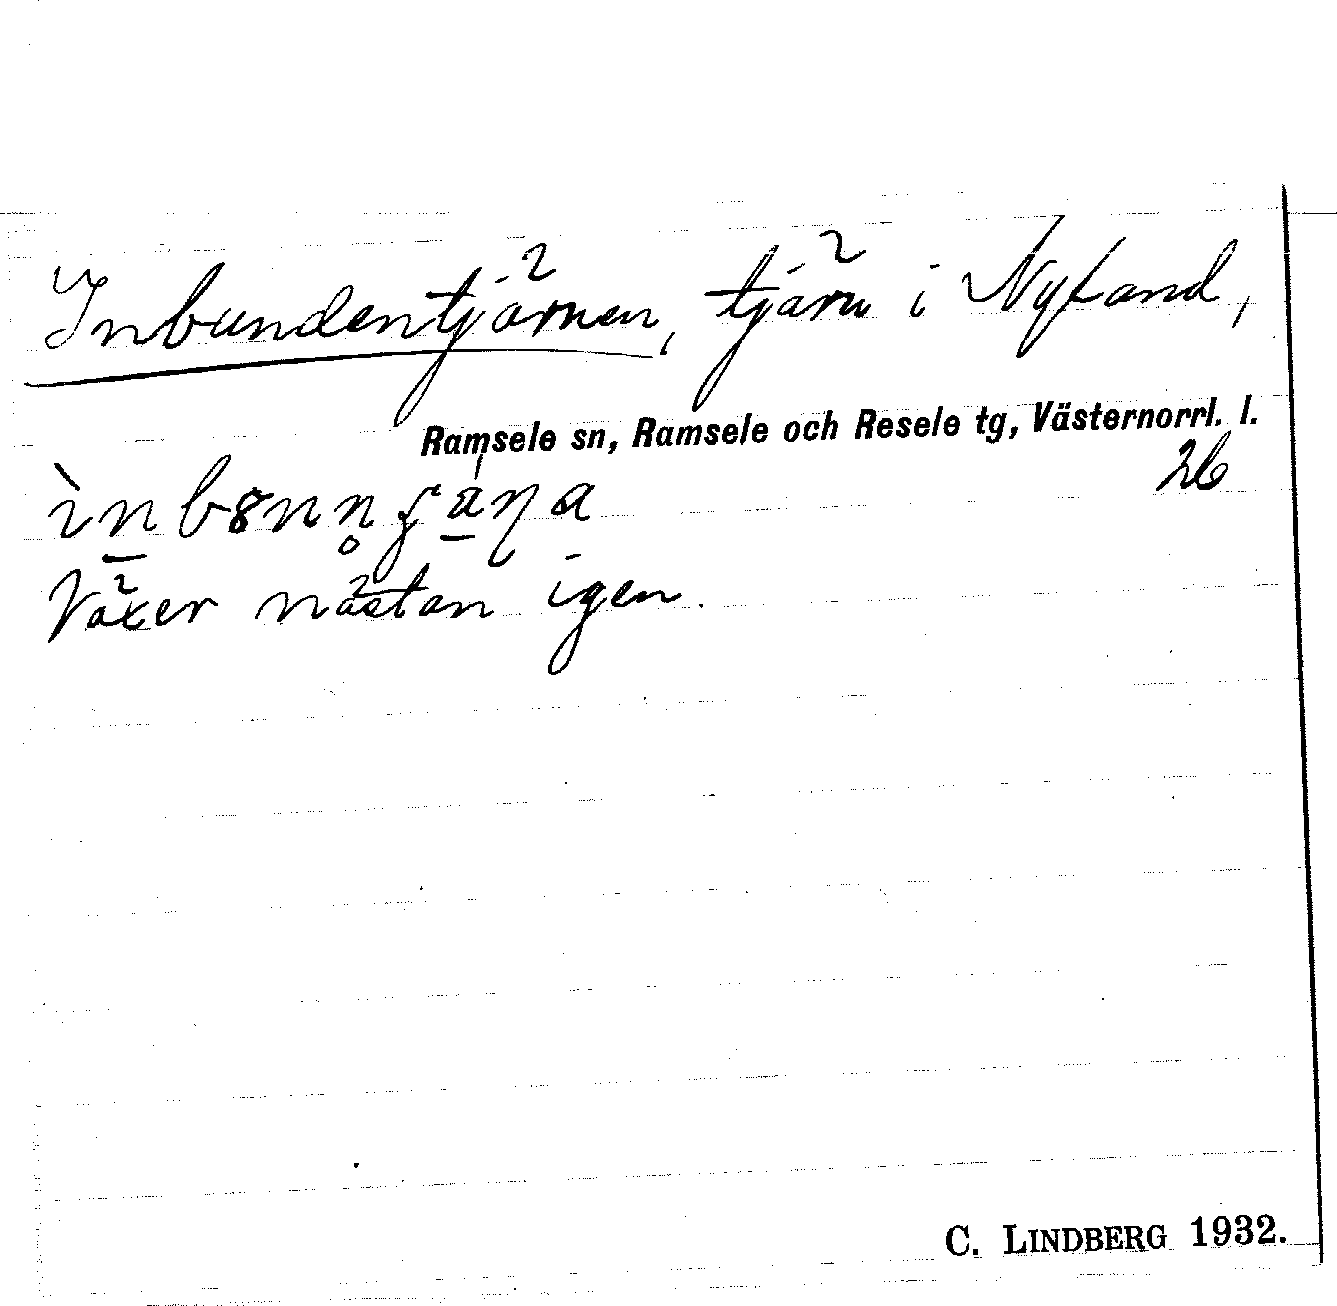 Inbundentjärnen, tjärn i Nyland,
Ramsele sn, Ramsele och Resele tg, Västernorrl. l.
26
Växer nästan igen.
C. LINDBERG 1932.